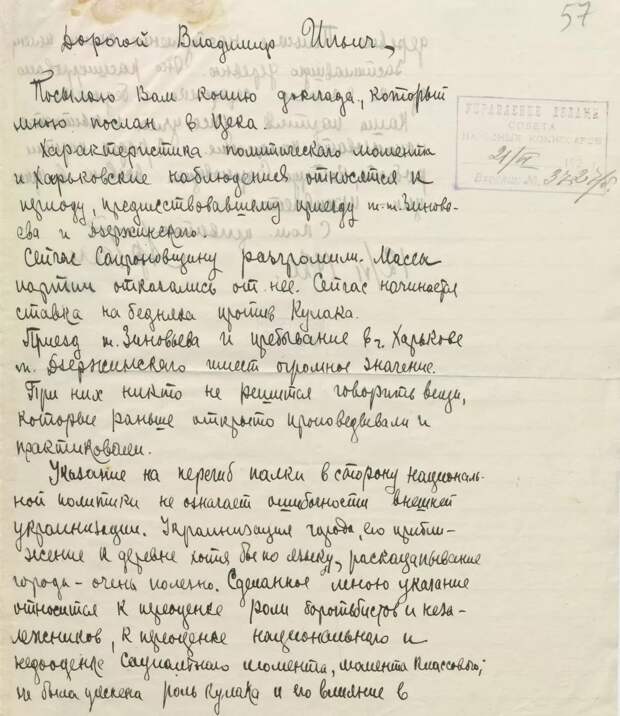 57
Дорогой Владимир Ильич,
Посылаю Вам копию доклада, который
мною послан в Цека.
УПРАВЛЕНИЕ ДЕЛАМИ
СОВЕТА
НАРОДНЫХ КОМИССАРОВ
21/VI
Входящ. №
Характеристика политического момента
и Харьковские наблюдения относятся к
периоду, предшествовавшему приезду т.т. Зиновь-
ева и Дзержинского.
Сейчас Сапроновщину разгромили. Массы
партии отказались от нее. Сейчас начинается
ставка на бедняка против Кулака.
Приезд т. Зиновьева и пребывание в г. Харькове
т. Дзержинского имеет огромное значение.
При них никто не решится говорить вещи,
которые раньше открыто проповедывали и
практиковали.
Указание на перегиб палки в сторону националь-
ной политики не означает ошибочности внешней
украинизации. Украинизация города, его прибли-
жение к деревне хотя бы по языку, раскацапывание
города - очень полезно. Сделанное мною указание
относится к переоценке роли боротьбистов и неза-
лежников, к переоценке национального и
недооценке Социального момента, момента классового;
не была учтена роль Кулака и его влияние в